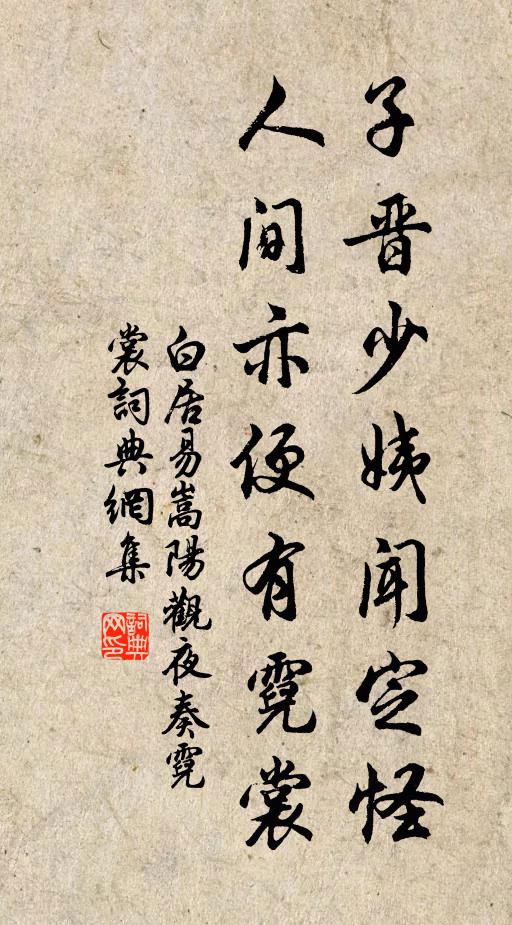 子晋少姨闻定怪
人间亦便有霓裳
白居易嵩陽觀夜奏霓
裳詞典網集
詞典
网印